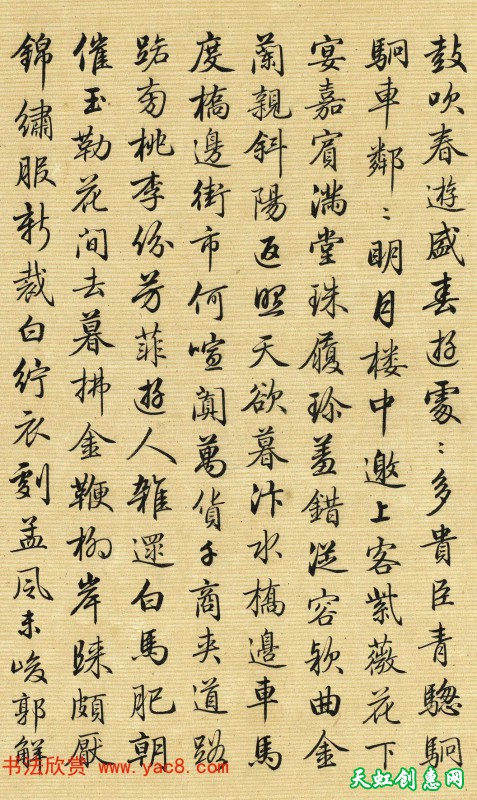 鼓吹春遊盛春遊處〻多貴臣青驄駉
駉車鄰〻明月楼中邀上客紫薇花下
宴嘉賓滿堂珠履珍羞錯從容欵曲金
蘭親斜陽返照天欲暮汴水橋邊車馬
度橋邊街市何喧闐萬貨千商夹道路
路旁桃李份芳菲遊人雜還白馬肥朝
催玉勒花間去暮拂金鞭柳岸歸頗厭
錦繡服新裁白紵衣劇孟風未峻郭解
书法欣赏 www.yac8.com
天虹创意网